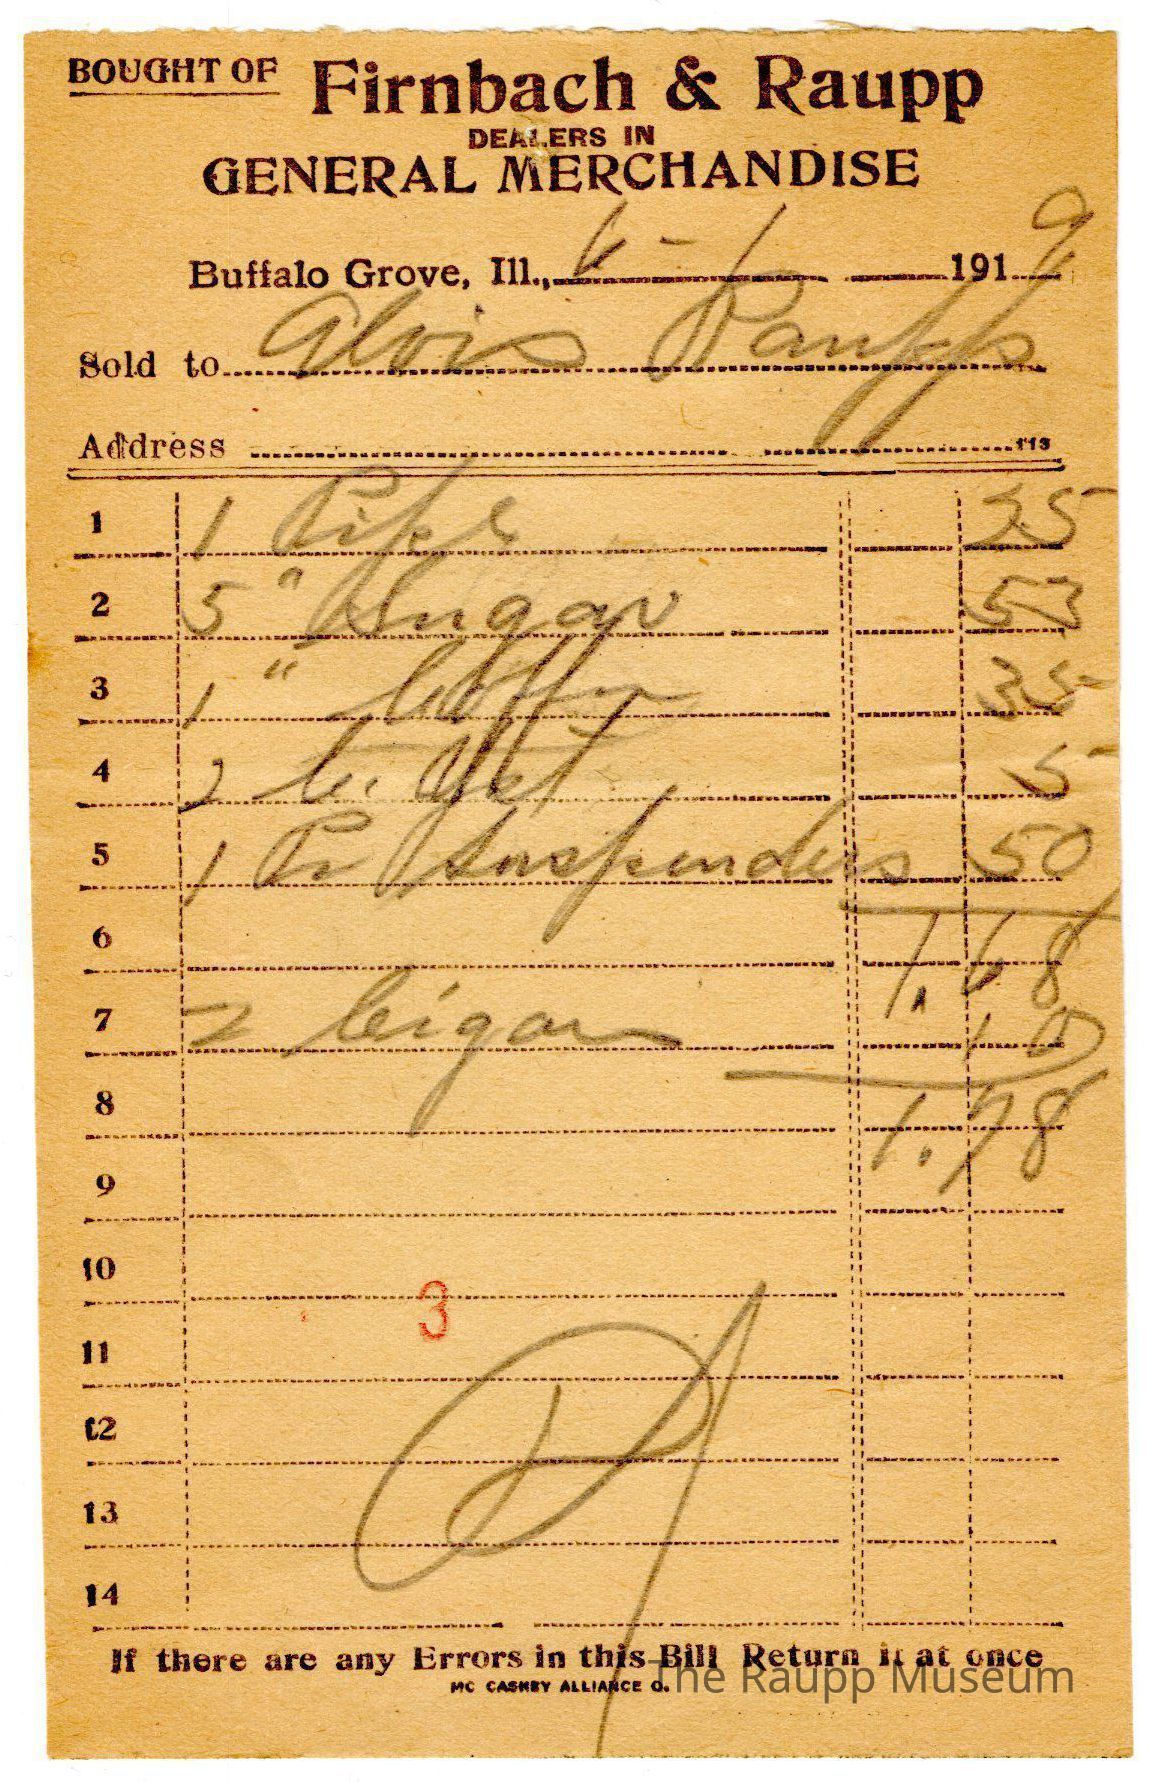 BOUGHT OF Firnbach & Raupp
DEALERS IN
GENERAL MERCHANDISE
Buffalo Grove, Ill., 6-1 1919
Sold to Alois Raupp
Address 113
1 1 Pipe 25
2 5 " Sugar 53
3 1 " Coffee 35
4 2 5
5 1 Pr Suspenders 50
6 1.68
7 2 Cigar 10
8 1.78
9
10
3
11
12
13
14
If there are any Errors in this Bill Return it at once
MC CASKEY ALLIANCE O.
The Raupp Museum